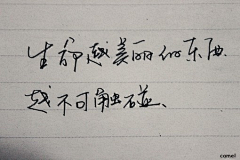 生命越美丽的东西
越不可触碰、
camel